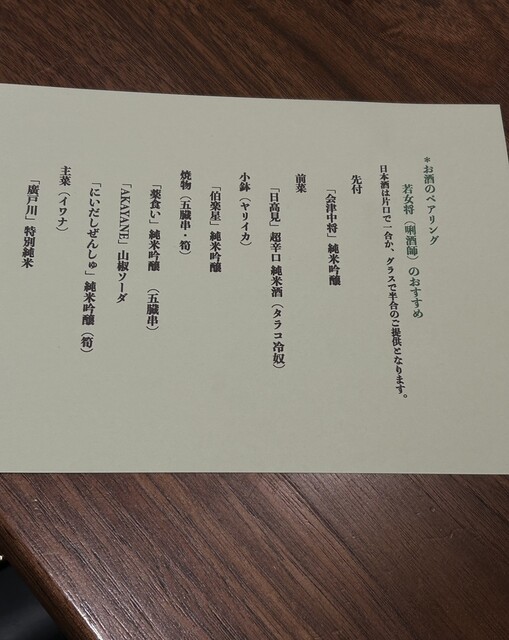 *お酒のペアリング
若女将（唎酒師）のおすすめ
日本酒は片口で一合か、グラスで半合のご提供となります。
先付
「会津中将」純米吟醸
前菜
「日高見」超辛口純米酒（タラコ冷奴）
小鉢（ヤリイカ）
「伯楽星」純米吟醸
焼物（五臓串・筍）
「薬食い」純米吟醸（五臓串）
「AKAYANE」山椒ソーダ
「にいだしぜんしゅ」純米吟醸（筍）
主菜（イワナ）
「廣戸川」特別純米